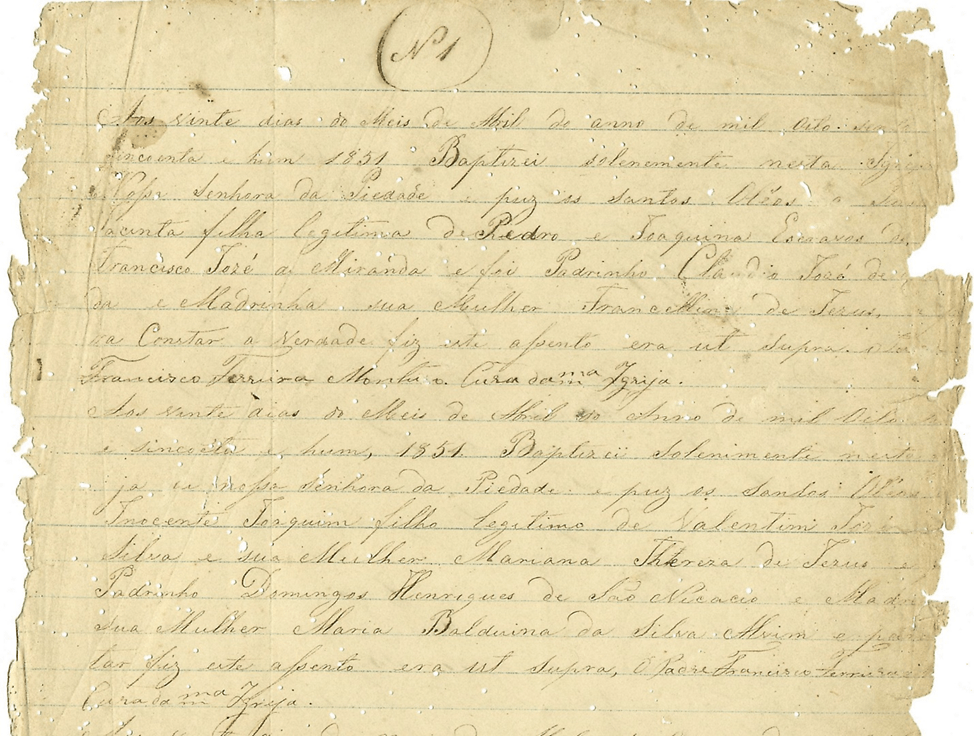 Nº 1
Aos vinte dias do Meis de Abril do anno de mil Oito
cincoenta e hum 1851 Baptizei solenemente nesta Igre
Nossa Senhora da Piedade e puz os Santos Oleos a
filha legitima de Pedro e Joaquina Escravos de
Francisco Jozé de Miranda e foi Padrinho Claudio Jozé de
da e Madrinha sua Mulher Francellina de Jezus,
ra Constar a verdade fiz este assento era ut supra.
Francisco Ferreira Monteiro. Cura da mma Igrija.
Aos vinte dias do Meis de Abril do Anno de mil Oito
e sincoēta e hum, 1851 Baptizei solenimente nesta
ja de nossa Senhora da Piedade e puz os Santos Oleos
Inocente Jorquim filho legitimo de Valentim Jozé
Silva e sua Mulher Mariana Thereza de Jezus e
Padrinho Domingos Henriques de São Nicacio e Madri
Sua Mulher Maria Balduina da Silva Alvim e para
tar fiz este assento era ut supra, O Padre Francisco Ferreira
Cura da mma Igrija.